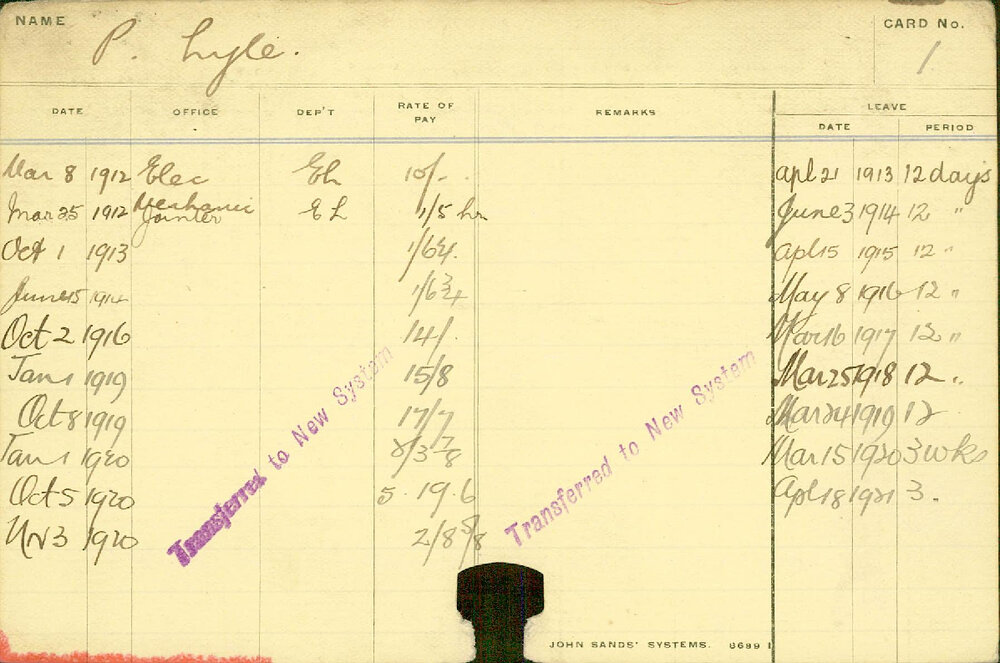 NAME P. Lyle. CARD No. 1
DATE OFFICE DEP'T RATE OF PAY REMARKS LEAVE
DATE PERIOD
Mar 8 1912 Elec EL 10/- apl 21 1913 12 days
Mar 25 1912 Mechanic Jointer EL 1/5 hr June 3 1914 12 "
Oct 1 1913 1/6¼ apl 15 1915 12 "
June 15 1914 1/6¾ May 8 1916 12 "
Oct 2 1916 14/- Mar 16 1917 12 "
Jan 1 1919 15/8 Mar 25 1918 12 "
Oct 8 1919 17/7 Mar 24 1919 12
Jan 1 1920 2/3 7/8 Mar 15 1920 3 wks
Oct 5 1920 5. 19. 6 Apl 18 1921 3.
Nv 3 1920 2/8 5/8
Transferred to New System
Transferred to New System
JOHN SANDS' SYSTEMS. 8699 1